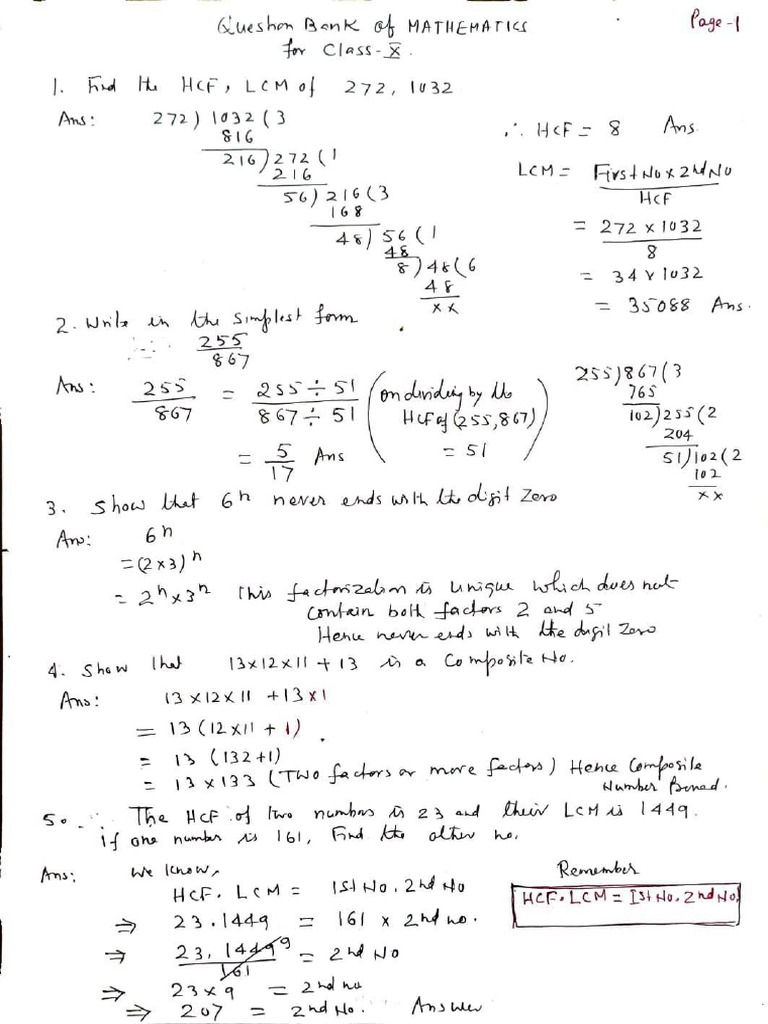 Page-1
Question Bank of MATHEMATICS
for Class-X.
1. Find the HCF, LCM of 272, 1032
Ans: 272) 1032 (3
816
216) 272 (1
216
56) 216 (3
168
48) 56 (1
48
8) 48 (6
48
xx
∴ HCF = 8 Ans.
LCM = First No x 2nd No
HCF
= 272 x 1032
8
= 34 x 1032
= 35088 Ans.
2. Write in the simplest form
255
867
Ans: 255/867 = 255 ÷ 51/867 ÷ 51 (on dividing by the HCF of (255,867) = 51)
= 5/17 Ans
255) 867 (3
765
102) 255 (2
204
51) 102 (2
102
xx
3. Show that 6ⁿ never ends with the digit Zero
Ans: 6ⁿ
= (2 x 3)ⁿ
= 2ⁿ x 3ⁿ This factorization is unique which does not
contain both factors 2 and 5
Hence never ends with the digit Zero
4. Show that 13x12x11 + 13 is a Composite No.
Ans: 13 x 12 x 11 + 13 x 1
= 13 (12 x 11 + 1)
= 13 (132+1)
= 13 x 133 (Two factors or more factors) Hence Composite
Number
5. The HCF of two numbers is 23 and their LCM is 1449.
if one number is 161, Find the other no.
Ans: We know,
HCF. LCM = Ist No. 2nd No
⇒ 23.1449 = 161 x 2nd no.
⇒ 23. 1449 9 = 2nd No
161
⇒ 23 x 9 = 2nd no
⇒ 207 = 2nd No. Answer
Remember
HCF. LCM = Ist No. 2nd No